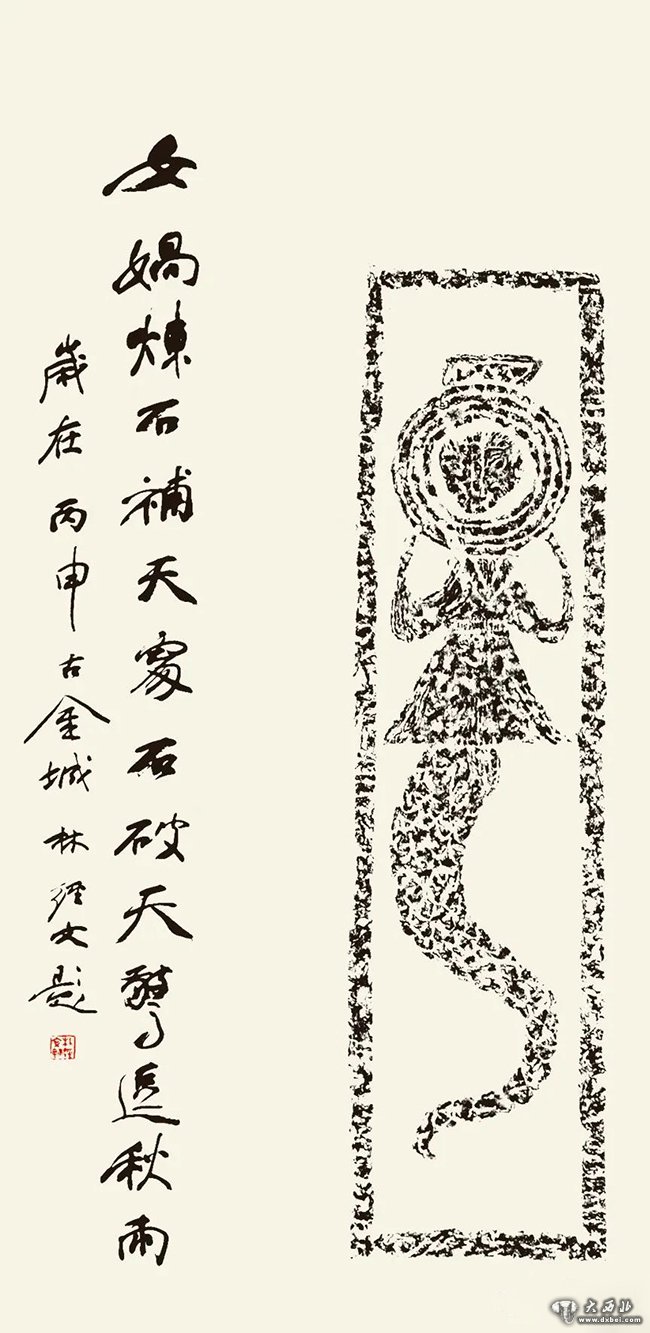 女媧煉石補天處石破天驚逗秋雨
歲在丙申古金城林經文題
大西北
www.dxbei.com